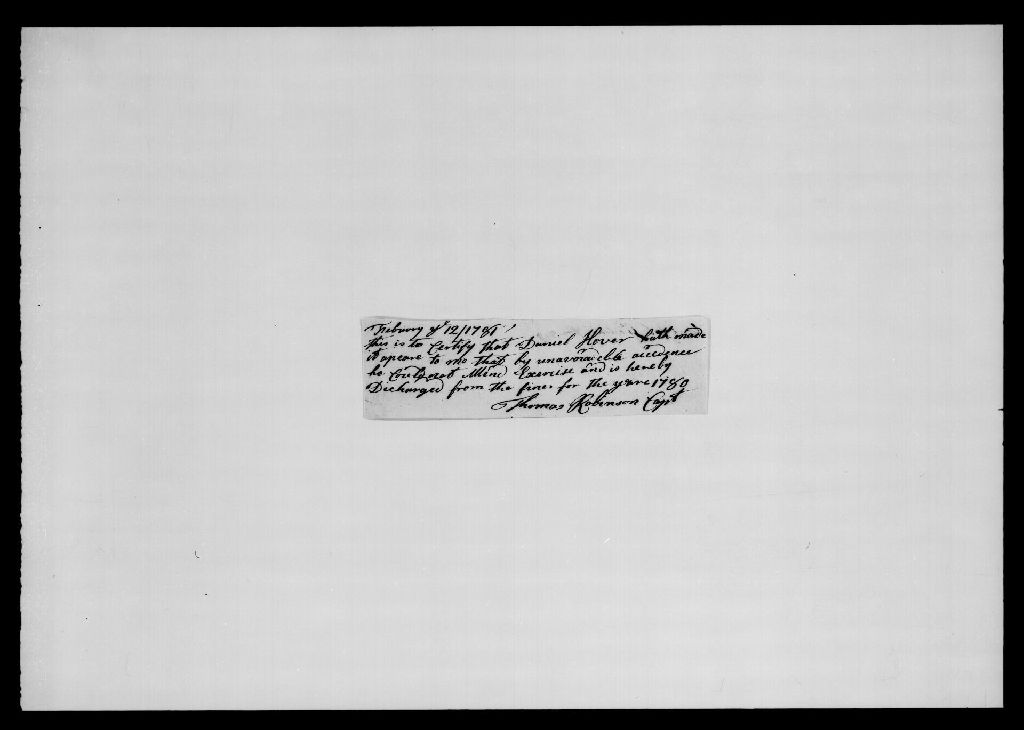 Febuary ye 12/1781
this is to Certify that Daniel Hover hath made
it apeare to me that by unavoidelble accidence
he Could not Attend Exercise and is hereby
Discharged from the fines for the yeare 1780
Thomas Robinson Capt